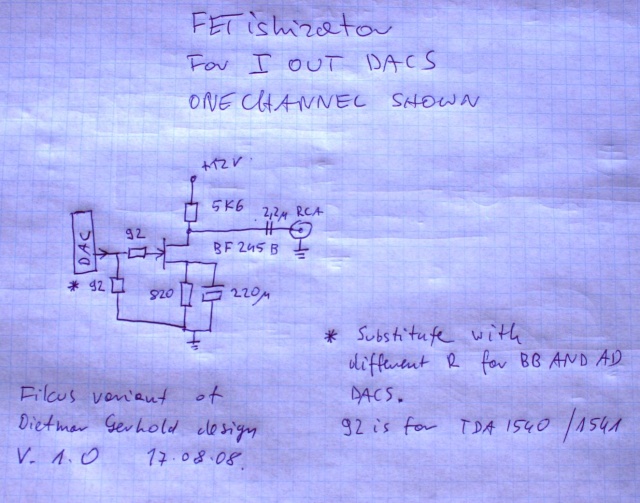 FETishizator
For I OUT DACS
ONE CHANNEL SHOWN
+12V
5K6
2,2µ RCA
DAC
92
BF245B
* 92
820
220µ
* Substitute with
different R for BB AND AD
DACS.
92 is for TDA 1540 / 1541
Filcus variant of
Dietmar Gerhold design
V. 1.0 17.08.08.